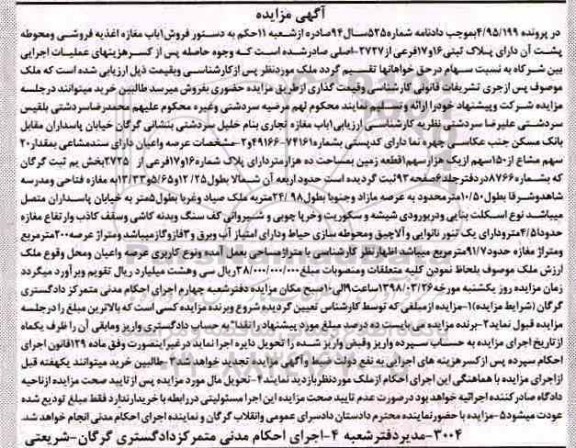 آگهی مزایده
در پرونده ۴/۹۵/۱۹۹بموجب دادنامه شماره۵۳۵سال۹۴صادره ازشعبه ۱۱حکم به دستور فروش۱باب مغازه اغذیه فروشی ومحوطه
پشت آن دارای پلاک ثبتی۱۶و۱۷فرعی از۲۷۲۷-اصلی صادرشده است که وجوه حاصله پس از کسرهزینهای عملیات اجرایی
بین شرکاء به نسبت سهام درحق خواهانها تقسیم گردد ملک موردنظر پس ازکارشناسی وبقیمت ذیل ارزیابی شده است که ملک
موصوف پس ازجری تشریفات قانونی کارشناسی وقیمت گذاری ازطریق مزایده حضوری بفروش میرسد طالبین خرید میتوانند درجلسه
مزایده شرکت وپیشنهاد خودرا ارائه وتسلیم نمایند محکوم لهم مرضیه سردشتی وغیره محکوم علیهم محمدرضاسردشتی بلقیس
سردشتی علیرضا سردشتی نظریه کارشناسی ارزیابی۱باب مغازه تجاری بنام خلیل سردشتی بنشانی گرگان خیابان پاسداران مقابل
بانک مسکن جنب عکاسی چهره نما دارای کدپستی بشماره۷۴۱۶۱-۴۹۱۶۶و۲-مشخصات عرصه واعیان دارای سندمشاعی بمقدار۲۰
سهم مشاع از۱۵۰سهم ازیک هزارسهم۱قطعه زمین بمساحت ده هزارمتردارای پلاک شماره۱۶و۱۷فرعی از ۲۷۲۵بخش یم ثبت گرگان
که بشماره۸۷۶۶دردفترجلد۶صفحه۹۳ثبت گردیده است حدود اربعه آن شمالا بطول۱۲/۲۵و۵/۶۵و۱۳/۳۳به مغازه فتاحی ومدرسه
شاهدوشرقا بطول۱۰/۵۰مترمحدود به عرصه مازاد وجنوبا بطول۲۴/۹۸متربه ملک صیاد وغربا بطول۵متر به خیابان پاسداران متصل
میباشد نوع اسکلت بنایی ودرپورودی شیشه و سکوریت وخرپا چوبی و شیروانی کف سنگ وبدنه کاشی وسقف کاذب وارتفاع مغازه
حدودا۴/۵مترودارای یک تنور نانوایی وآلاچیق ومحوطه سازی حیاط ودارای امتیاز آب وبرق و۳فازوگازمیباشد ومتراژ عرصه۲۰۰مترمربع
ومتراژ مغازه حدود۹۱/۷مترمربع میباشد اظهارنظر کارشناسی با متراژمساحی بعمل آمده ونوع کاربری عرصه واعیان ومحل وقوع ملک
ارزش ملک موصوف بلحاظ نمودن کلیه متعلقات ومنصوبات مبلغ۳۸/۰۰۰/۰۰۰/۰۰۰ریال سی وهشت میلیارد ریال تقویم وبرآورد میگردد
زمان مزایده روز یکشنبه مورخه۱۳۹۸/۰۳/۲۶ازساعت۹الی۱۰صبح مکان مزایده دفترشعبه چهارم اجرای احکام مدنی متمرکز دادگستری
گرگان (شرایط مزایده)۱-مزایده ازمبلغی که توسط کارشناس تعیین گردیده شروع وبرنده مزایده کسی است که بالاترین مبلغ را درجلسه
مزایده قبول نماید۲-برنده مزایده می بایست ده درصد مبلغ مورد پیشنهاد را نقدا به حساب دادگستری واریز ومابقی آن را ظرف یکماه
از تاریخ اجرای مزایده به حساب سپرده واریز وفیش واریز شده را تحویل دایره اجرا نماید درغیراینصورت وفق ماده ۱۲۹قانون اجرای
احکام سپرده پس ازکسرهزینه های اجرایی به نفع دولت ضبط وآگهی مزایده تجدید خواهدشد۳-طالبین خرید میتوانند یکهفته قبل
ازاجرای مزایده با هماهنگی این اجرای احکام ازملک موردنظربازدید نمایند۴-تحویل مال مورد مزایده پس از تایید صحت مزایده ازناحیه
دادگاه صادرکننده اجرائیه خواهد بود درصورت عدم تایید صحت مزایده این اجرا مسئولیتی دررابطه با خریدارندارد فقط مبلغ تودیع شده
عودت میشود۵-مزایده با حضورنماینده محترم دادستان دادسرای عمومی وانقلاب گرگان و نماینده اجرای احکام مدنی انجام خواهد شد.
۳۰۰۴-مدیردفترشعبه ۴-اجرای احکام مدنی متمرکزدادگستری گرگان-شریعتی